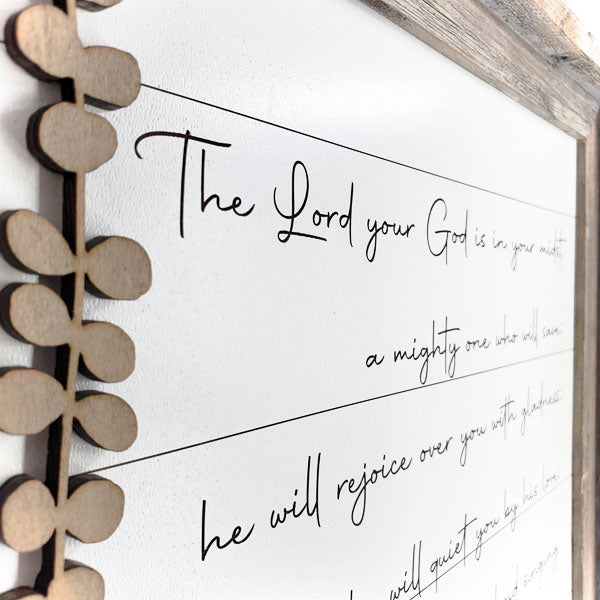 The Lord your God is in your midst,
a mighty one who will save;
he will rejoice over you with gladness;
will quiet you by his love;
singing